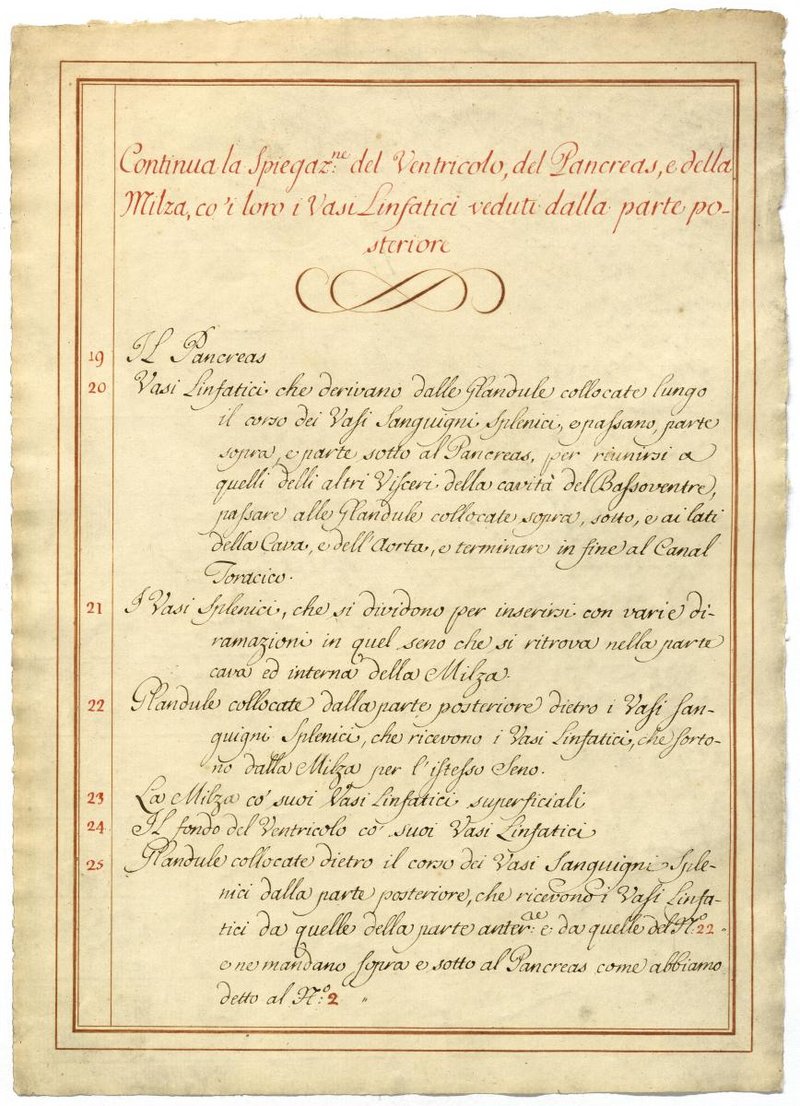 Continua la Spiegaz.ne del Ventricolo, del Pancreas, e della
Milza, co'i loro i Vasi Linfatici veduti dalla parte po-
steriore
19 Il Pancreas
20 Vasi Linfatici che derivano dalle Glandule collocate lungo
il corso dei Vasi Sanguigni Splenici, e passano, parte
sopra, e parte sotto al Pancreas, per riunirsi a
quelli delli altri Visceri della cavità del Bassoventre,
passare alle Glandule collocate sopra, sotto, e ai lati
della Cava, e dell'Aorta, e terminare in fine al Canal
Toracico.
21 I Vasi Splenici, che si dividono per inserirsi con varie di-
ramazioni in quel seno che si ritrova nella parte
cava ed interna della Milza.
22 Glandule collocate dalla parte posteriore dietro i Vasi San-
guigni Splenici, che ricevono i Vasi Linfatici, che sorto-
no dalla Milza per l'istesso Seno.
23 La Milza co' suoi Vasi Linfatici superficiali
24 Il fondo del Ventricolo co' suoi Vasi Linfatici
25 Glandule collocate dietro il corso dei Vasi Sanguigni Sple-
nici dalla parte posteriore, che ricevono i Vasi Linfa-
tici da quelle della parte anter.re e da quelle del N.o 22
e ne mandano sopra e sotto al Pancreas come abbiamo
detto al N.o 2 "